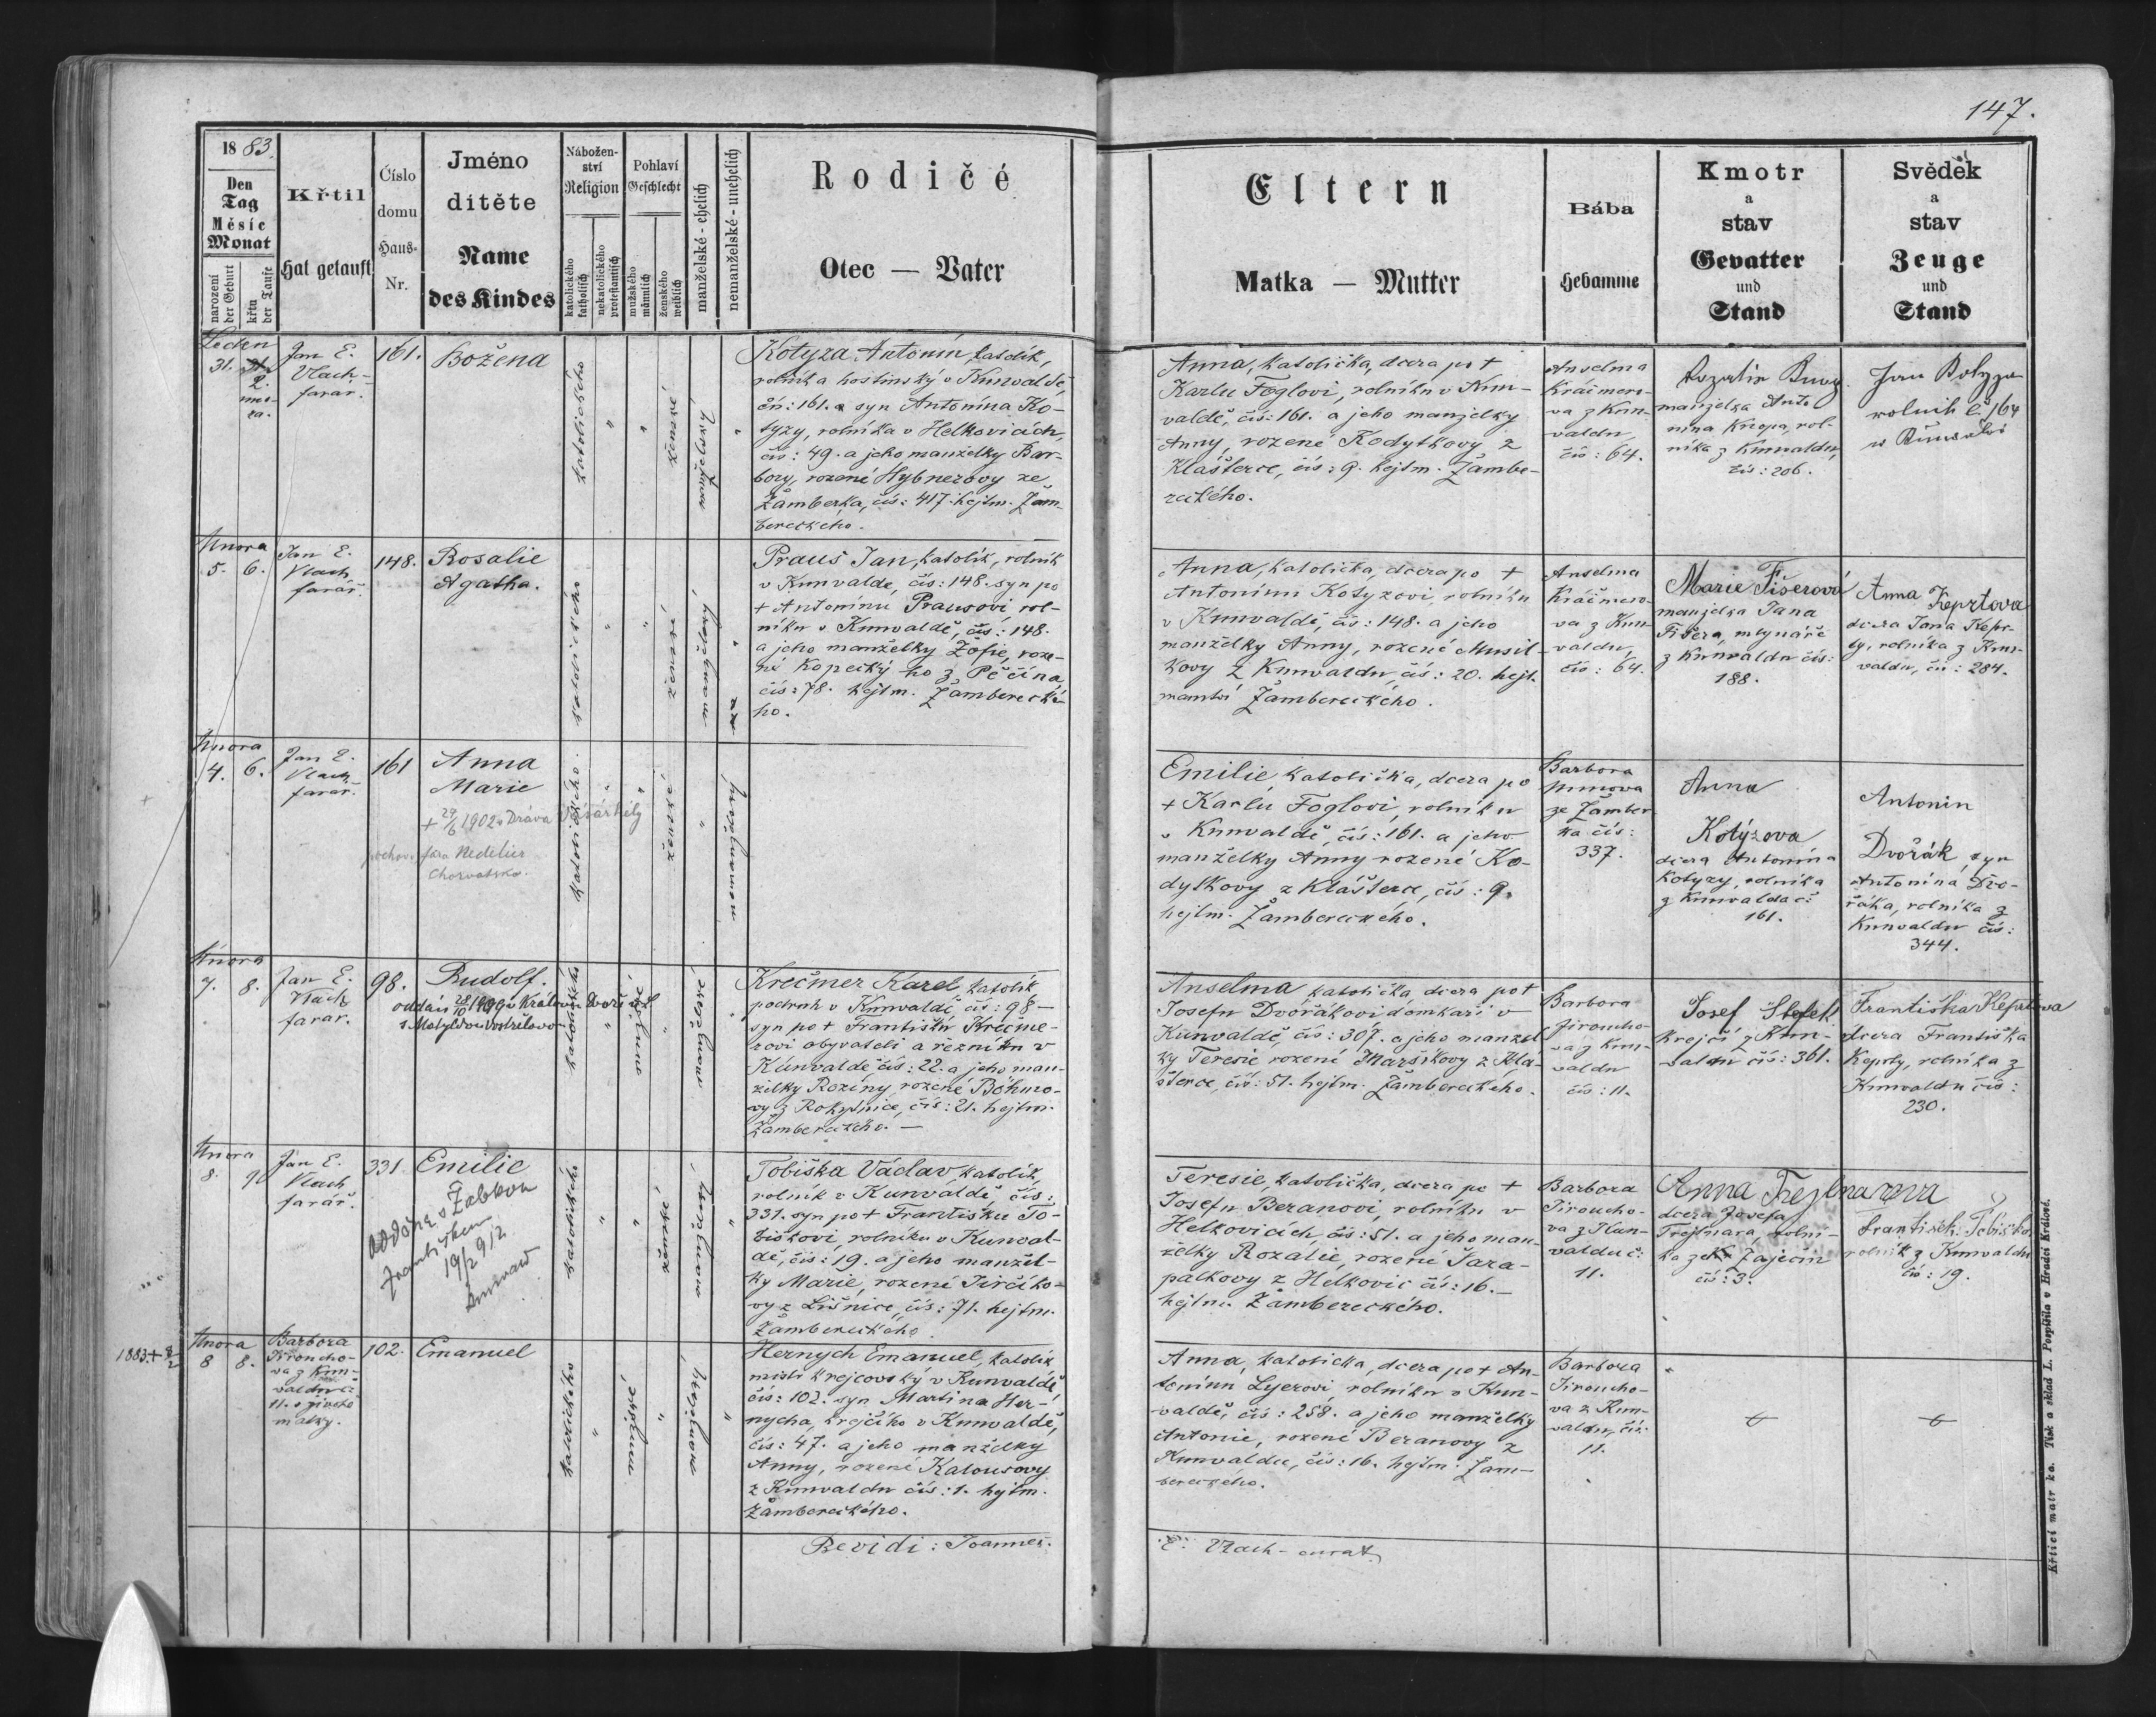 147.
18 83.
Den
Tag
Měsíc
Monat
narození
der Geburt
křtu
der Taufe
Křtil
Hat getauft
Číslo
domu
Haus-
Nr.
Jméno
dítěte
Name
des Kindes
Nábožen-
ství
Religion
katolického
katholisch
nekatolického
protestantisch
Pohlaví
Geschlecht
mužského
männlich
ženského
weiblich
manželské - ehelich
nemanželské - unehelich
Rodičé
Otec — Vater
Eltern
Matka — Mutter
Bába
Hebamme
Kmotr
a
stav
Gevatter
und
Stand
Svědek
a
stav
Zeuge
und
Stand
Leden
31. 31.
2.
Jan E.
Vlach
farář.
161.
Božena
katolického
"
"
ženské
manželský
"
Kotyza Antonín, katolík,
rolník a hostinský v Kunvaldě
čís: 161. a syn Antonína Ko-
tyzy, rolníka v Helkovicích,
čís: 49. a jeho manželky Bar-
bory, rozené Hybnerovy ze
Žamberka, čís: 417. hejtm. Žam-
bereckého.
Anna, katolička, dcera po +
Karlu Foglovi, rolníku v Kun-
valdě, čís: 161. a jeho manželky
Anny, rozené Kodytkovy z
Klášterce, čís: 9. hejtm. Žambe-
reckého.
Anselma
Kráčmero-
va z Kun-
valdu
čís: 64.
manželka Anto
nína Knopa, rol-
níka z Kunvaldu,
čís: 206.
Jan Kotyza
rolník č 164
Února
5. 6.
Jan E.
Vlach
farář.
148.
Rosalie
Agatha.
katolického
"
"
ženské
manželský
"
Praus Jan, katolík, rolník
v Kunvaldě, čís: 148. syn po
+ Antonínu Prausovi rol-
níku v Kunvaldě, čís: 148.
a jeho manželky Žofie, roze-
né Kopecký ho z Pěčína
čís: 78. hejtm. Žambereckě-
ho.
Anna, katolička, dcera po +
Antonínu Kotyzovi, rolníku
v Kunvaldě, čís: 148. a jeho
manželky Anny, rozené Musil-
kovy z Kunvaldu, čís: 20. hejt-
manství Žambereckého.
Anselma
Kráčmero-
va z Kun-
valdu,
čís: 64.
Marie Fišerová
manželka Jana
Fišera, mlynáře
z Kunvaldu čís:
188.
Anna Keprtova
dcera Jana Kepr-
ty, rolníka z Kun-
valdu, čís: 284.
Února
4. 6.
Jan E.
Vlach
farář.
161
Anna
Marie
+ 29/6 1902 v Dráva Vásárhely
pochov. fara Nedelice
Chorvatsko.
katolického
"
"
ženské
"
nemanželský
Emilie katolička, dcera po
+ Karlu Foglovi, rolníku
v Kunvaldě, čís: 161. a jeho
manželky Anny rozené Ko-
dytkovy z Klášterce, čís: 9.
hejtm. Žambereckého.
Barbora
ze Žamber
ka čís:
337.
Anna
Kotýzova
dcera Antonína
Kotyzy, rolníka
z Kunvalda čís
161.
Antonín
Dvořák, syn
Antonína Dvo-
řáka, rolníka z
Kunvaldu čís:
344.
Února
7. 8.
Jan E.
Vlach
farář.
98.
Rudolf.
oddán 28/10 1909 v Králové Dvoře n/L
s Matyldou Vostřelovou
katolického
"
mužské
"
manželské
"
Krečmer Karel, katolík
podruh v Kunvaldě, čís: 98 —
syn po + Františku Krečme-
rovi obyvateli a řezníku v
Kunvaldě čís: 22. a jeho man-
želky Roziny rozené Böhmo-
vy z Rokytnice, čís: 21. hejtm.
Žambereckého. —
Anselma katolička dcera po +
Josefu Dvořákovi domkaři v
Kunvaldě, čís: 307. a jeho manžel
ky Teresie rozené Maršíkovy z Klá-
šterce, čís: 51. hejtm. Žambereckého.
Barbora
Jiroucho-
va z Kun-
valdu
čís: 11.
Josef Stefek
krejčí z Kun-
valdu čís: 361.
Františka Keprtova
dcera Františka
Keprty, rolníka z
Kunvaldu čís:
230.
Února
8. 9.
Jan E.
Vlach
farář.
331.
Emilie
František
19/2 912
katolického
"
"
ženské
manželské
"
Tobiška Václav, katolík,
rolník v Kunvaldě čís:
331. syn po + Františku To-
biškovi, rolníku v Kunval-
dě, čís: 19. a jeho manžel-
ky Marie, rozené Jirčího-
vy z Lišnice, čís: 71. hejtm.
Žambereckého.
Teresie, katolička, dcera po +
Josefu Beranovi, rolníku v
Helkovicích, čís: 51. a jeho man-
želky Rozalie, rozené Šara-
palkovy z Helkovic čís: 16. —
hejtm. Žambereckého.
Barbora
Jiroucho-
va z Kun-
valdu č:
11.
Anna Trejtnarova
dcera Josefa
Trejtnara, rolní-
ka ze Zaječin
čís: 3.
František Tobiška
rolník z Kunvaldu
čís: 19.
1883 + 8/2
Února
8 8.
Barbora
Jiroucho-
va z Kun-
valdu č
11.
matky.
102.
Emanuel
katolického
"
mužské
"
manželský
"
Hernych Emanuel, katolík
mistr krejčovský v Kunvaldě,
čís: 102. syn Martina Her-
nycha, krejčího v Kunvaldě,
čís: 47. a jeho manželky
Anny, rozené Kalousovy
z Kunvaldu čís: 1. hejtm.
Žambereckého.
Anna, katolička, dcera po + An-
tonínu Lyerovi rolníku v Kun-
valdě, čís: 258. a jeho manželky
Antonie, rozené Beranovy z
Kunvaldu, čís: 16. hejtm. Žam-
bereckého.
Barbora
Jiroucho-
va z Kun-
valdu, čís:
11.
Revidi: Joannes.
E. Vlach - curat.
Křticí matrika. Tisk a sklad L. Pospíšila v Hradci Králové.